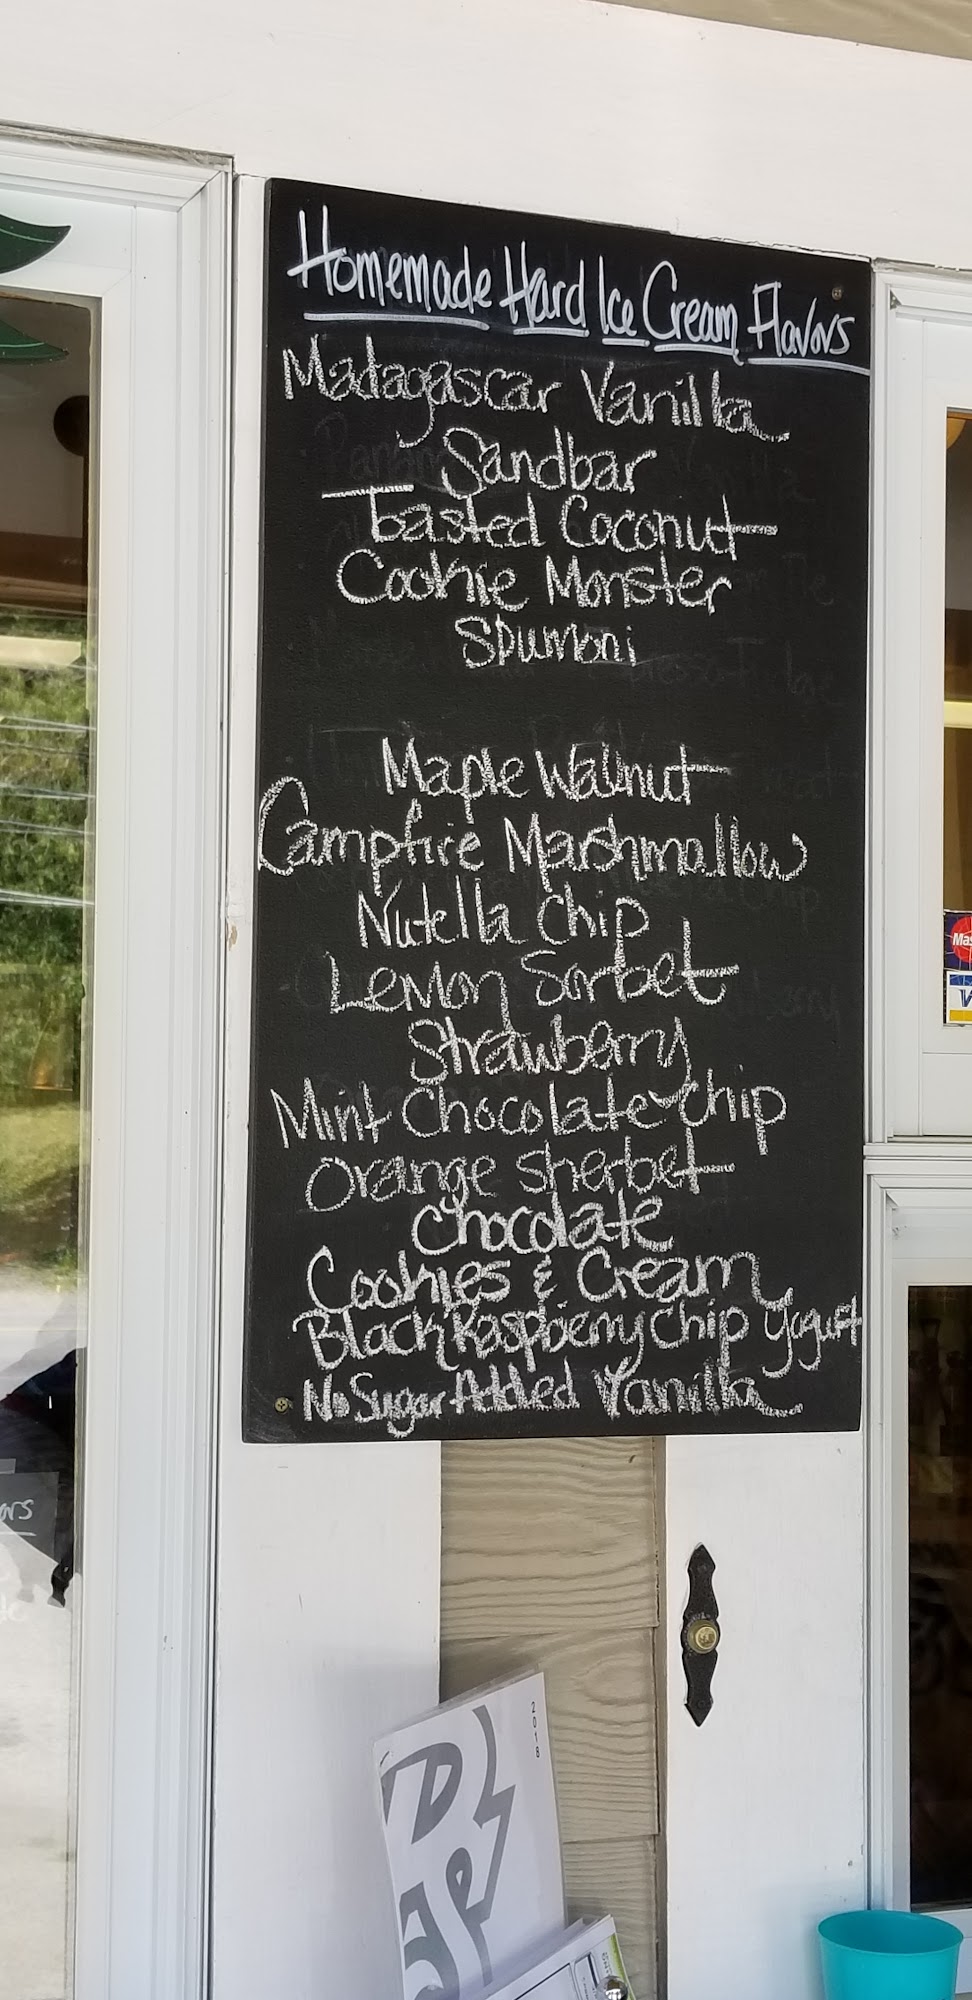 Homemade Hard Ice Cream Flavors
Madagascar Vanilla
Sandbar
Toasted Coconut
Cookie Monster
Spumoni
Maple Walnut
Campfire Marshmallow
Nutella Chip
Lemon Sorbet
Strawberry
Mint Chocolate Chip
Orange Sherbet
Chocolate
Cookies & Cream
Black Raspberry Chip Yogurt
No Sugar Added Vanilla
2018